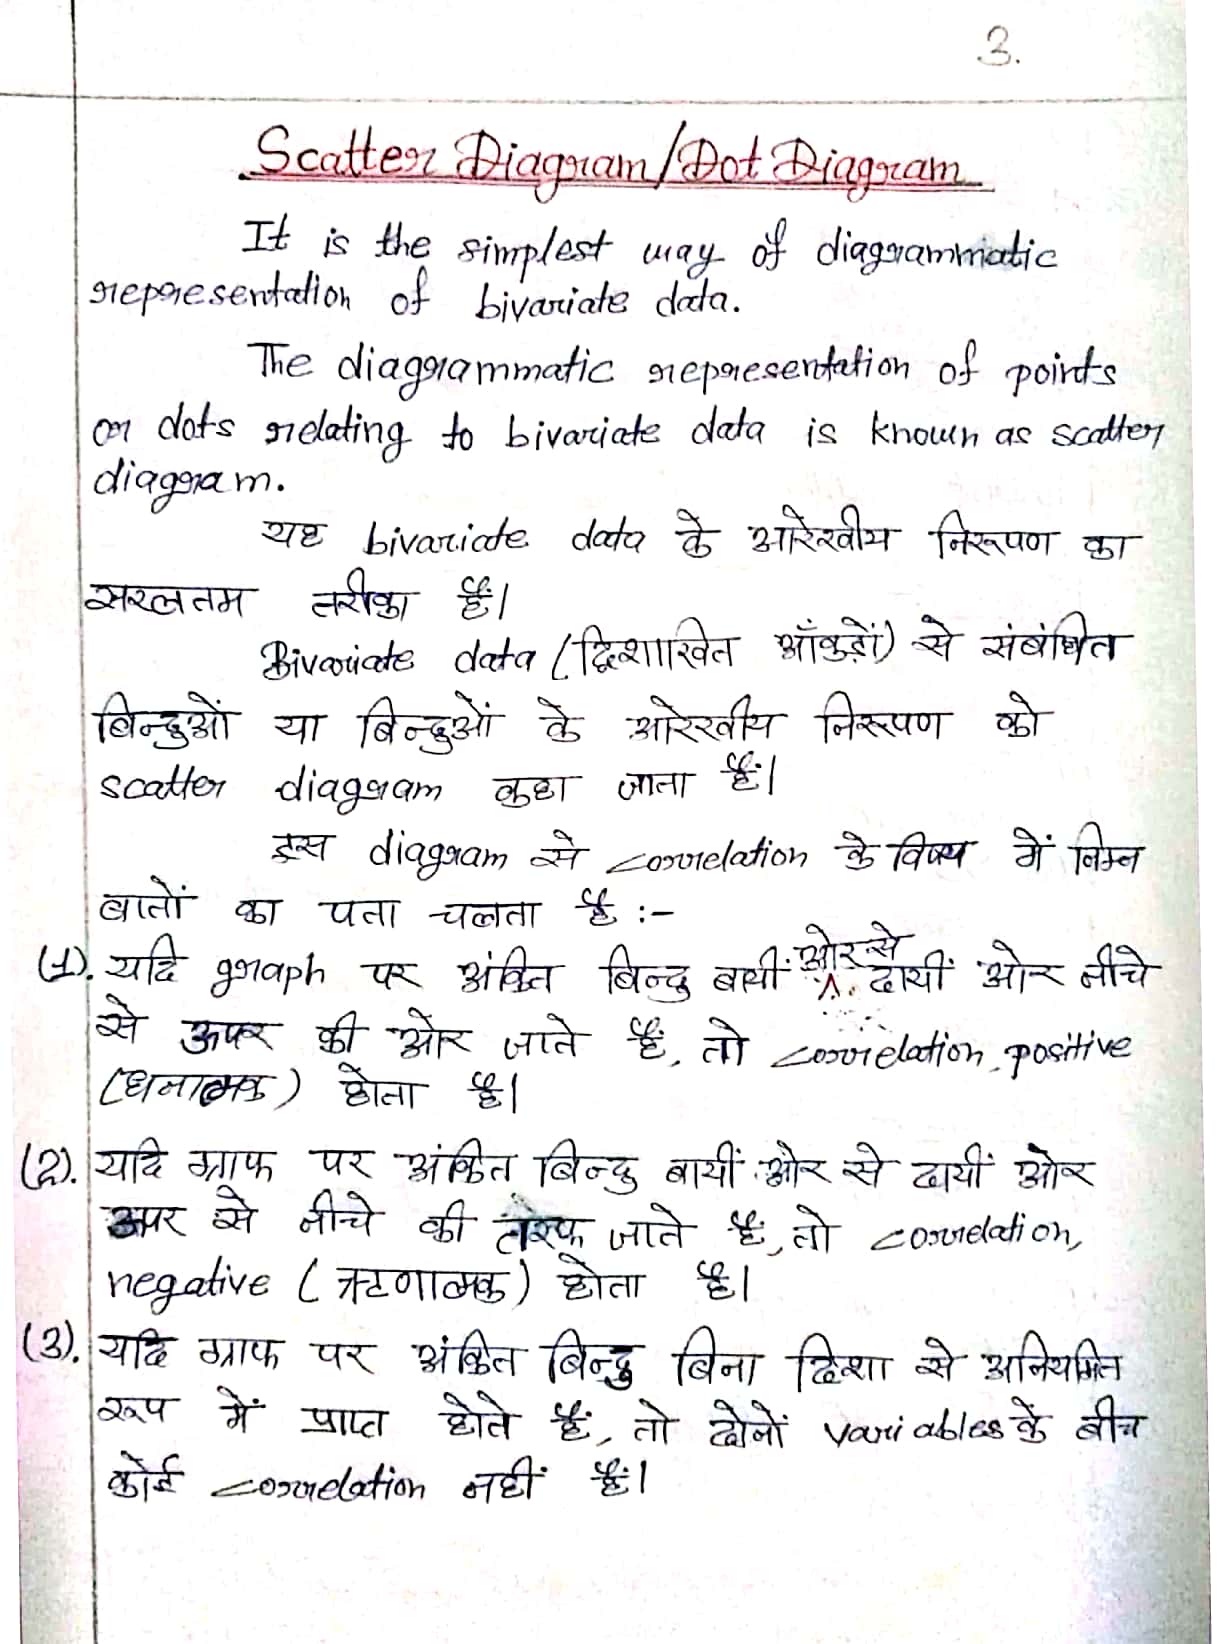 3.
Scatter Diagram/Dot Diagram
It is the simplest way of diagrammatic
representation of bivariate data.
The diagrammatic representation of points
or dots relating to bivariate data is known as scatter
diagram.
यह bivariate data के आरेखीय निरूपण का
सरलतम तरीका है।
Bivariate data (द्विशाखित आँकड़ों) से संबंधित
बिन्दुओं या बिन्दुओं के आरेखीय निरूपण को
scatter diagram कहा जाता है।
इस diagram से correlation के विषय में निम्न
बातों का पता चलता है :-
(1). यदि graph पर अंकित बिन्दु बायीं ओर से दायीं ओर नीचे
से ऊपर की ओर जाते हैं, तो correlation, positive
(धनात्मक) होता है।
(2). यदि ग्राफ पर अंकित बिन्दु बायीं ओर से दायीं ओर
ऊपर से नीचे की तरफ जाते हैं, तो correlation,
negative (ऋणात्मक) होता है।
(3). यदि ग्राफ पर अंकित बिन्दु बिना दिशा से अनियमित
रूप में प्राप्त होते हैं, तो दोनों variables के बीच
कोई correlation नहीं हैं।